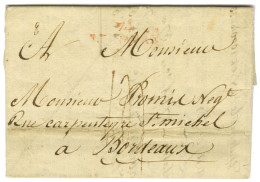 A Monsieur
Monsieur Promis Neg.t
Rue carpenteyre St michel
a Bordeaux